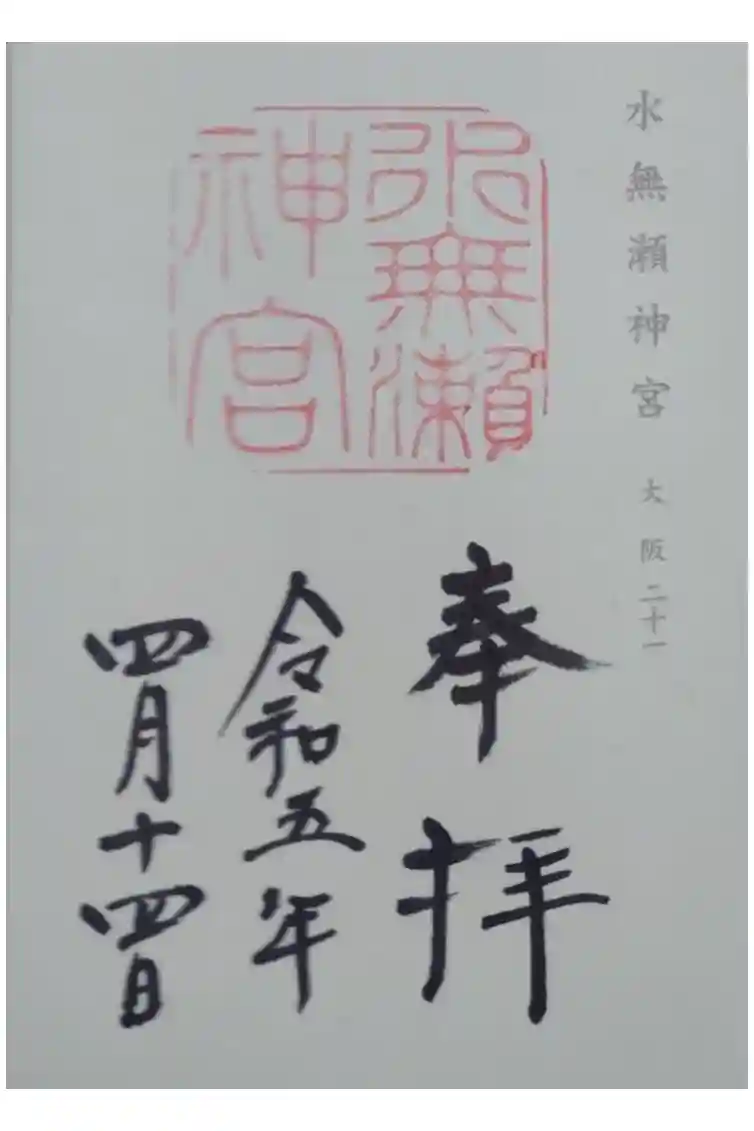 水無瀬神宮 大阪二十一
水無瀬
神宮
奉拝
令和五年
四月十四日